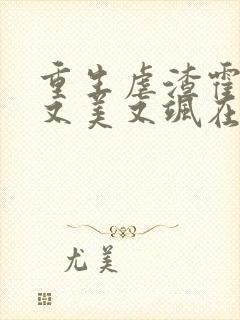 重生虐渣霍
又美又飒在
尤美